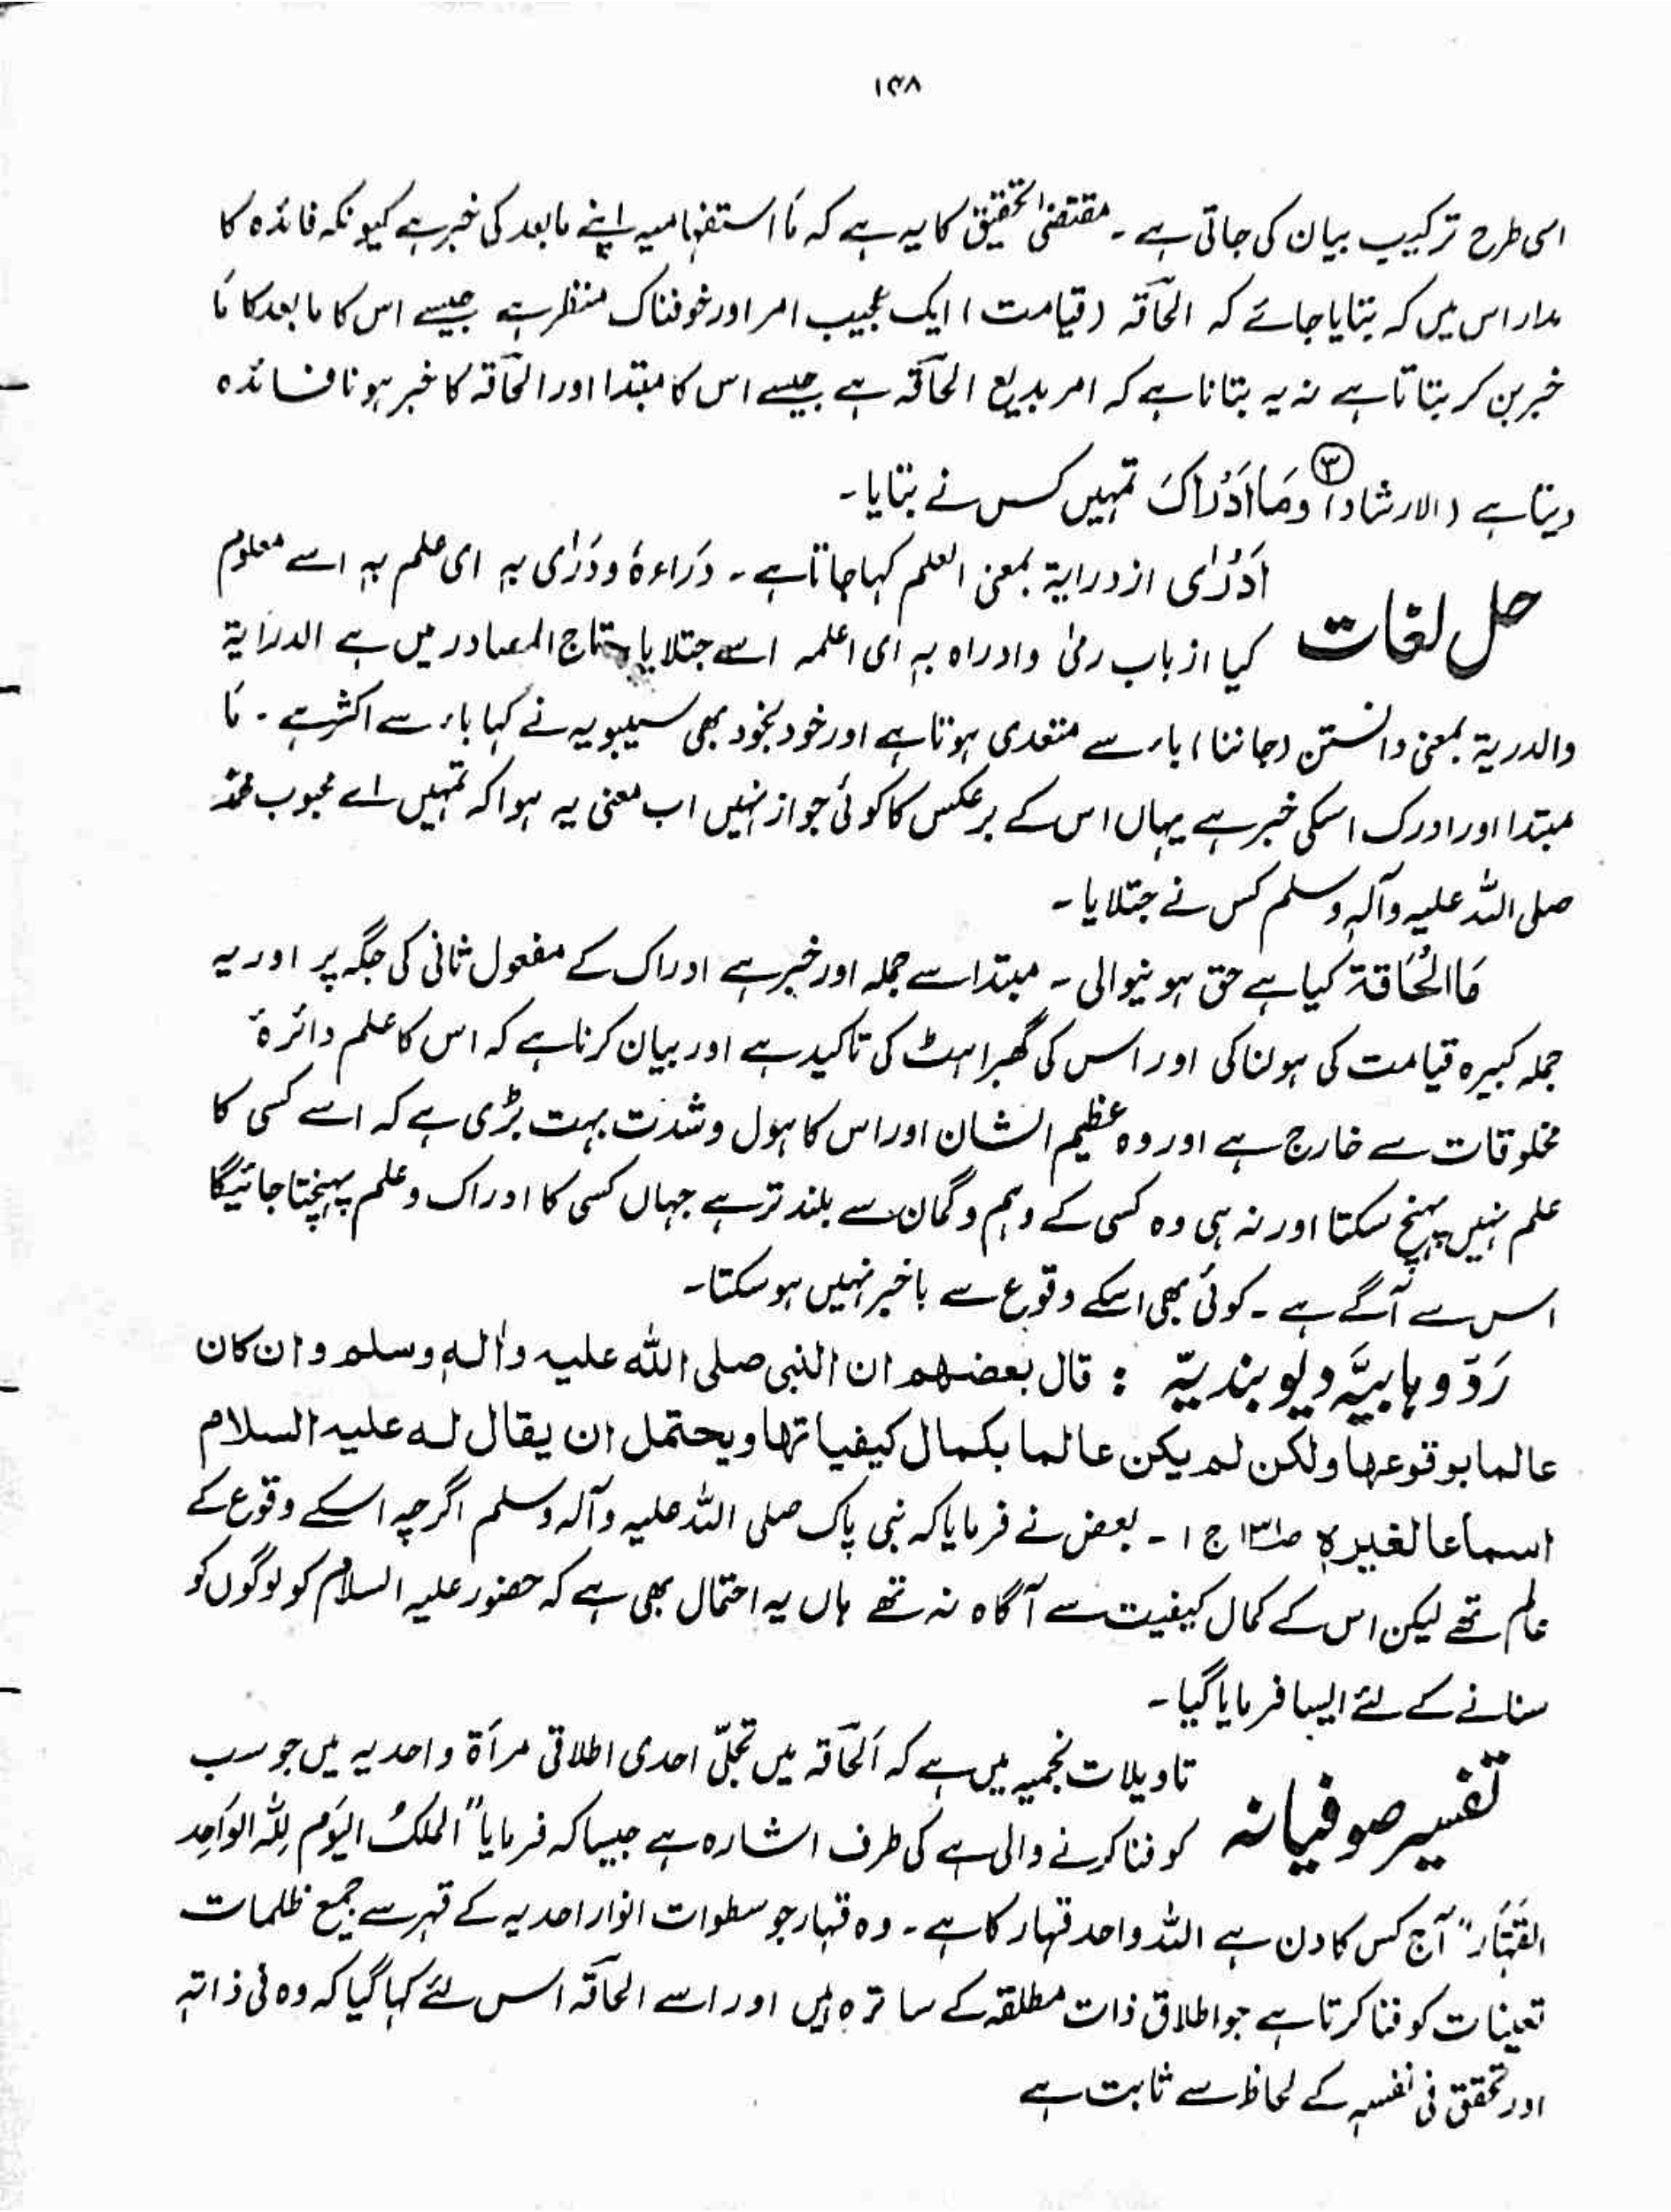 ۱۳۸
اسی طرح ترکیب بیان کی جاتی ہے ۔ مقتضیٰ تحقیق کا یہ ہے کہ مَا استفہامیہ اپنے مابعد کی خبر ہے کیونکہ فائدہ کا
مدار اس میں کہ بتایا جائے کہ الحآقہ (قیامت) ایک عجیب امر اور خوفناک منظر ہے جیسے اس کا مابعد کا مَا
خبر بن کر بتاتا ہے نہ یہ بتانا ہے کہ امر بدیع الحآقہ ہے جیسے اس کا مبتدا اور الحآقہ کا خبر ہونا فائدہ
دیتا ہے (الارشاد) ③ وَمَا اَدْرَاکَ تمہیں کس نے بتایا ۔
اَدْرٰی از درایۃ بمعنی العلم کہا جاتا ہے ۔ دَرَاءہٗ و دَرٰی بہ ای علم بہ اسے معلوم
حل لغات کیا از باب رمیٰ وادراہ بہ ای اعلمہ اسے جتلایا تاج المصادر میں ہے الدرایۃ
والدریۃ بمعنی دانستن (جاننا) باء سے متعدی ہوتا ہے اور خود بخود بھی سیبویہ نے کہا باء سے اکثر ہے ۔ مَا
مبتدا اور ادرک اسکی خبر ہے یہاں اس کے برعکس کا کوئی جواز نہیں اب معنی یہ ہوا کہ تمہیں اے محبوب محمد
صلی اللہ علیہ وآلہٖ وسلم کس نے جتلایا ۔
مَا الْحَاقَّۃُ کیا ہے حق ہونیوالی ۔ مبتدا سے جملہ اور خبر ہے ادراک کے مفعول ثانی کی جگہ پر اور یہ
جملہ کبیرہ قیامت کی ہولناکی اور اس کی گھبراہٹ کی تاکید ہے اور بیان کرنا ہے کہ اس کا علم دائرۂ
مخلوقات سے خارج ہے اور وہ عظیم الشان اور اس کا ہول و شدت بہت بڑی ہے کہ اسے کسی کا
علم نہیں پہنچ سکتا اور نہ ہی وہ کسی کے وہم و گمان سے بلند تر ہے جہاں کسی کا ادراک و علم پہنچتا جائیگا
اس سے آگے ہے ۔ کوئی بھی اسکے وقوع سے باخبر نہیں ہو سکتا ۔
رَدّ وہابیَّہ دیوبندیّہ : قال بعضھم ان النبی صلی اللہ علیہ واٰلہٖ وسلم وان کان
عالما بوقوعھا ولکن لم یکن عالما بکمال کیفیاتھا ویحتمل ان یقال لہ علیہ السلام
اسماعا لغیرہٖ ص۱۳۱ ج ۱ ۔ بعض نے فرمایا کہ نبی پاک صلی اللہ علیہ وآلہٖ وسلم اگرچہ اسکے وقوع کے
عالم تھے لیکن اس کے کمال کیفیت سے آگاہ نہ تھے ہاں یہ احتمال بھی ہے کہ حضور علیہ السلام کو لوگوں کو
سنانے کے لئے ایسا فرمایا گیا ۔
تاویلات نجمیہ میں ہے کہ اَلحآقہ میں تجلّی احدی اطلاقی مرأۃ واحدیہ میں جو سب
تفسیر صوفیانہ کو فنا کرنے والی ہے کی طرف اشارہ ہے جیسا کہ فرمایا "المُلکُ الیَوم لِلّٰہِ الوَاحِدِ
القَہَّارِ" آج کس کا دن ہے اللہ واحد قہار کا ہے ۔ وہ قہار جو سطوات انوار احدیہ کے قہر سے جمیع ظلمات
تعینات کو فنا کرتا ہے جو اطلاق ذات مطلقہ کے ساترہ ہیں اور اسے الحآقہ اس لئے کہا گیا کہ وہ فی ذاتہٖ
اور تحقق فی نفسہٖ کے لحاظ سے ثابت ہے